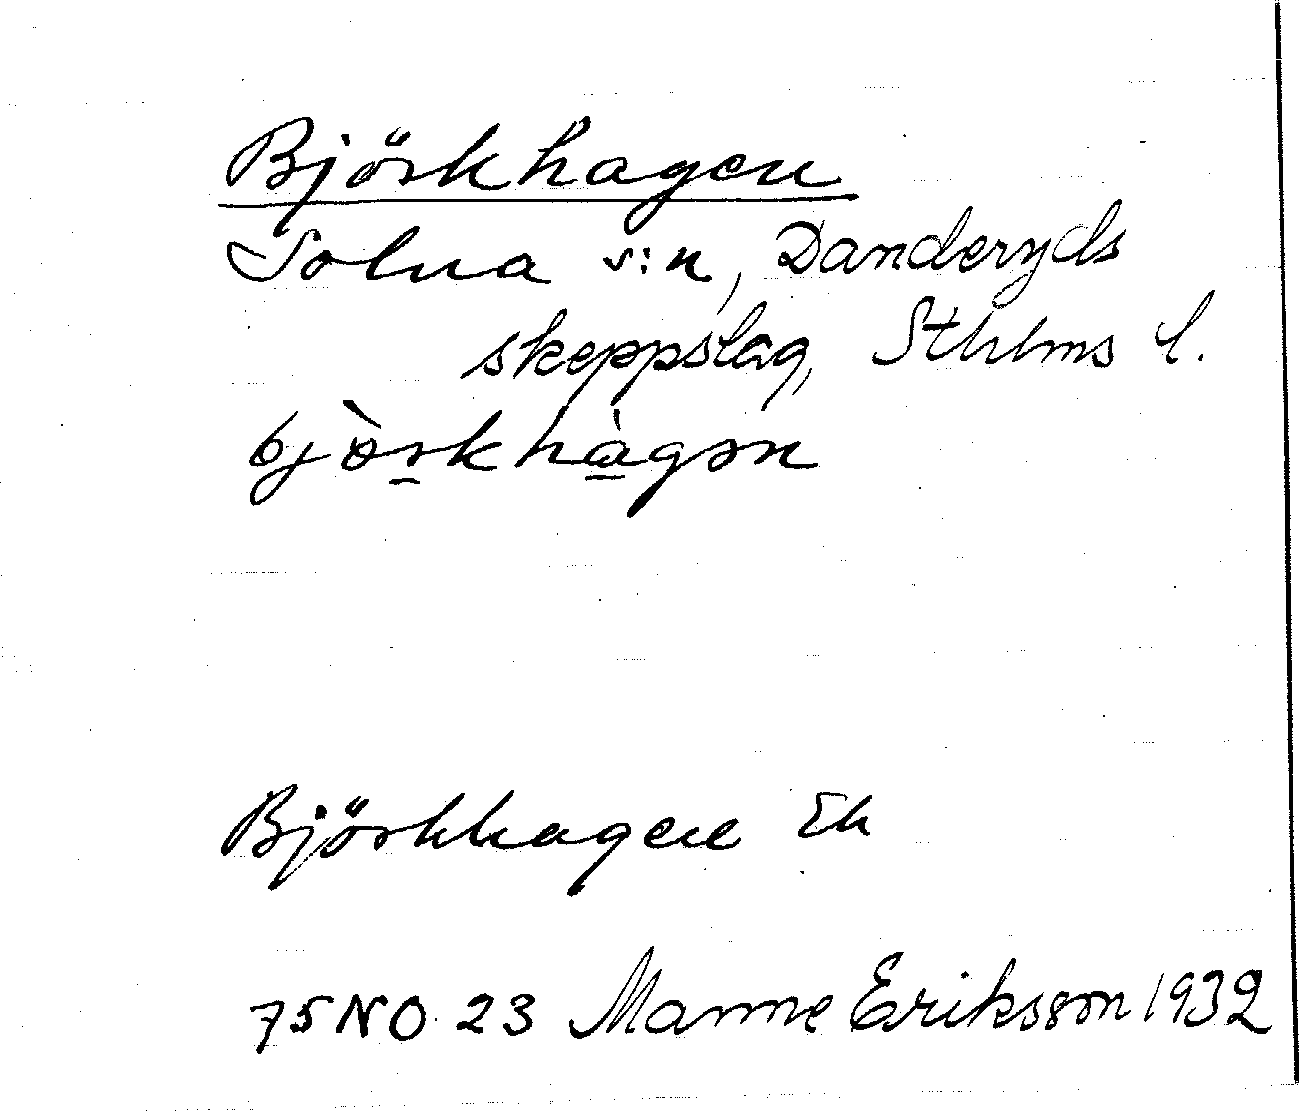 Björkhagen
Solna s:n, Danderyds
skeppslag, Sthlms l.
bjò̱rkhà̱gən
Björkhagen Ek
75 NO 23 Manne Eriksson 1932